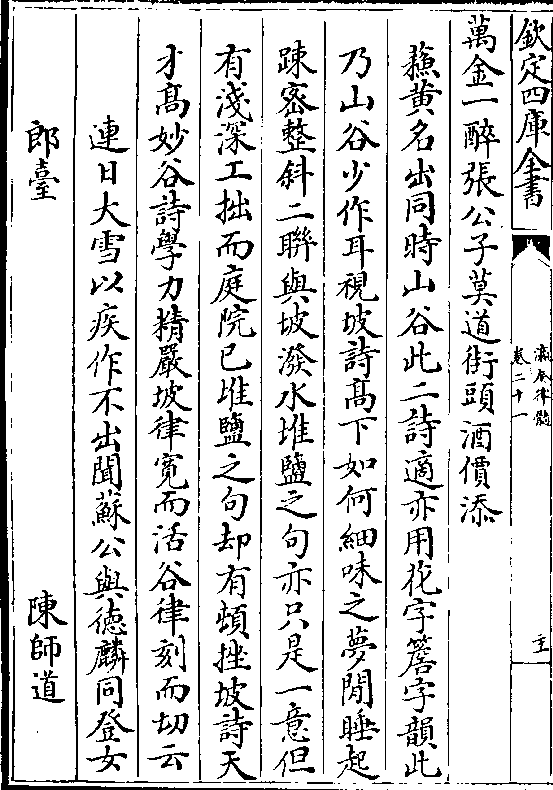 欽定四庫全書
瀛奎律髓
卷二十一
主
萬金一醉張公子莫道街頭酒價添
蘇黄名出同時山谷此二詩適亦用花字簷字韻此
乃山谷少作耳視坡詩髙下如何細味之夢閒睡起
踈宻整斜二聯與坡潑水堆鹽之句亦只是一意但
有淺深工拙而庭院已堆鹽之句却有頓挫坡詩天
才髙妙谷詩學力精嚴坡律寛而活谷律刻而切云
連日大雪以疾作不出聞蘇公與徳麟同登女
郎臺
陳師道